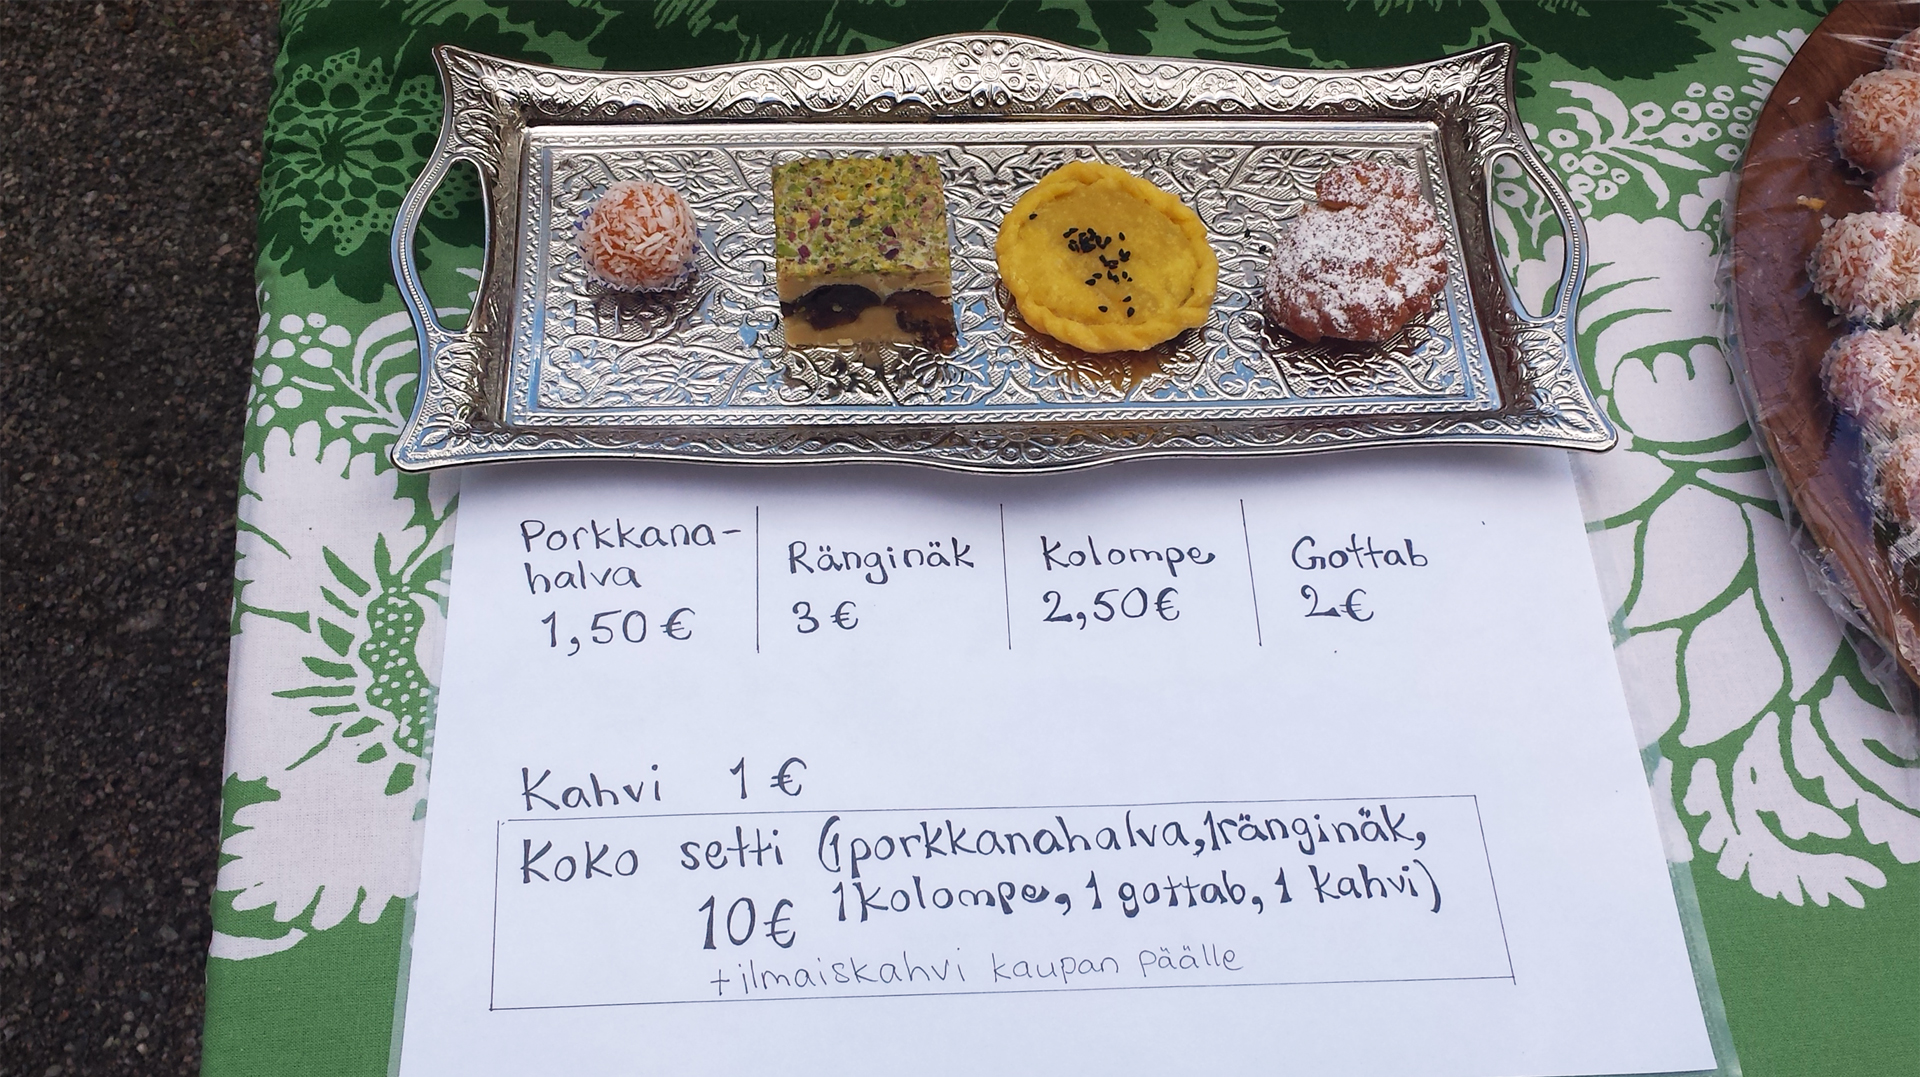 Porkkana-
halva
1,50€
Ränginäk
3€
Kolompe
2,50€
Gottab
2€
Kahvi 1€
Koko setti (1porkkanahalva,1ränginäk,
10€ 1kolompe, 1 gottab, 1 kahvi)
+ilmaiskahvi kaupan päälle